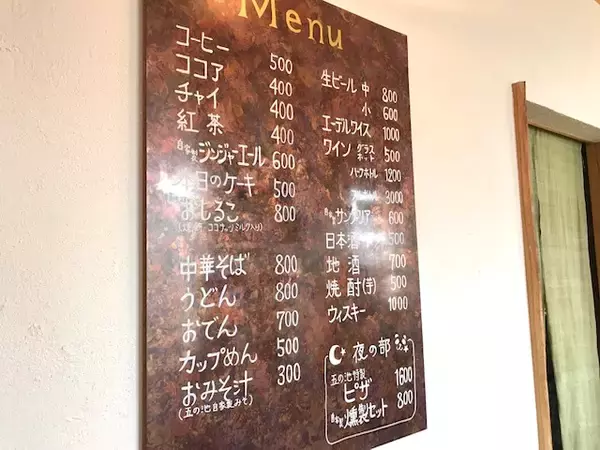 Menu
コーヒー 500
ココア 400
チャイ 400
紅茶 400
自家製 ジンジャエール 600
日のケーキ 500
おしるこ 800
ココナッツミルク入り)
中華そば 800
うどん 800
おでん 700
カップめん 500
おみそ汁 300
(五の池自家製みそ)
生ビール 中 800
小 600
エーデルワイス 1000
ワイン グラス ホット 500
ハーフボトル 1200
3000
自家製 サングリア 600
日本酒 500
地酒 700
焼酎(芋) 500
ウィスキー 1000
夜の部
五の池特製
ピザ 1600
自家製 燻製セット 800